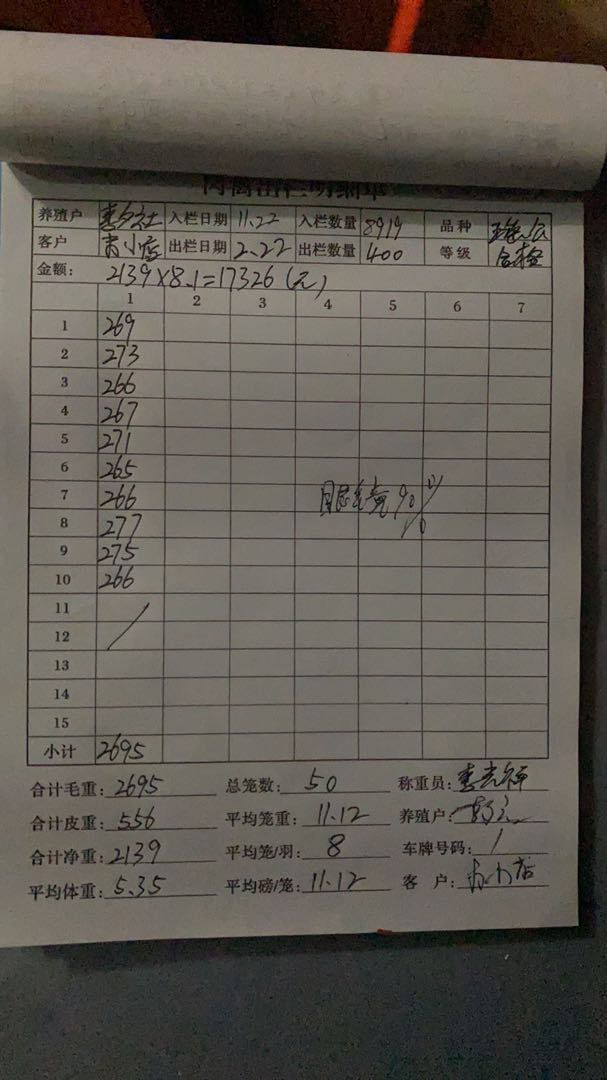 养殖户 入栏日期 11.22 入栏数量 8919 品种
客户 肖小店 出栏日期 2.22 出栏数量 400 等级 合格
金额: 2139×8.1=17326(元)
1 2 3 4 5 6 7
1 269
2 273
3 266
4 267
5 271
6 265
7 266 90%
8 277
9 275
10 266
11
12
13
14
15
小计 2695
合计毛重: 2695 总笼数: 50 称重员:
合计皮重: 556 平均笼重: 11.12 养殖户:
合计净重: 2139 平均笼/羽: 8 车牌号码: /
平均体重: 5.35 平均磅/笼: 11.12 客户: 肖小店